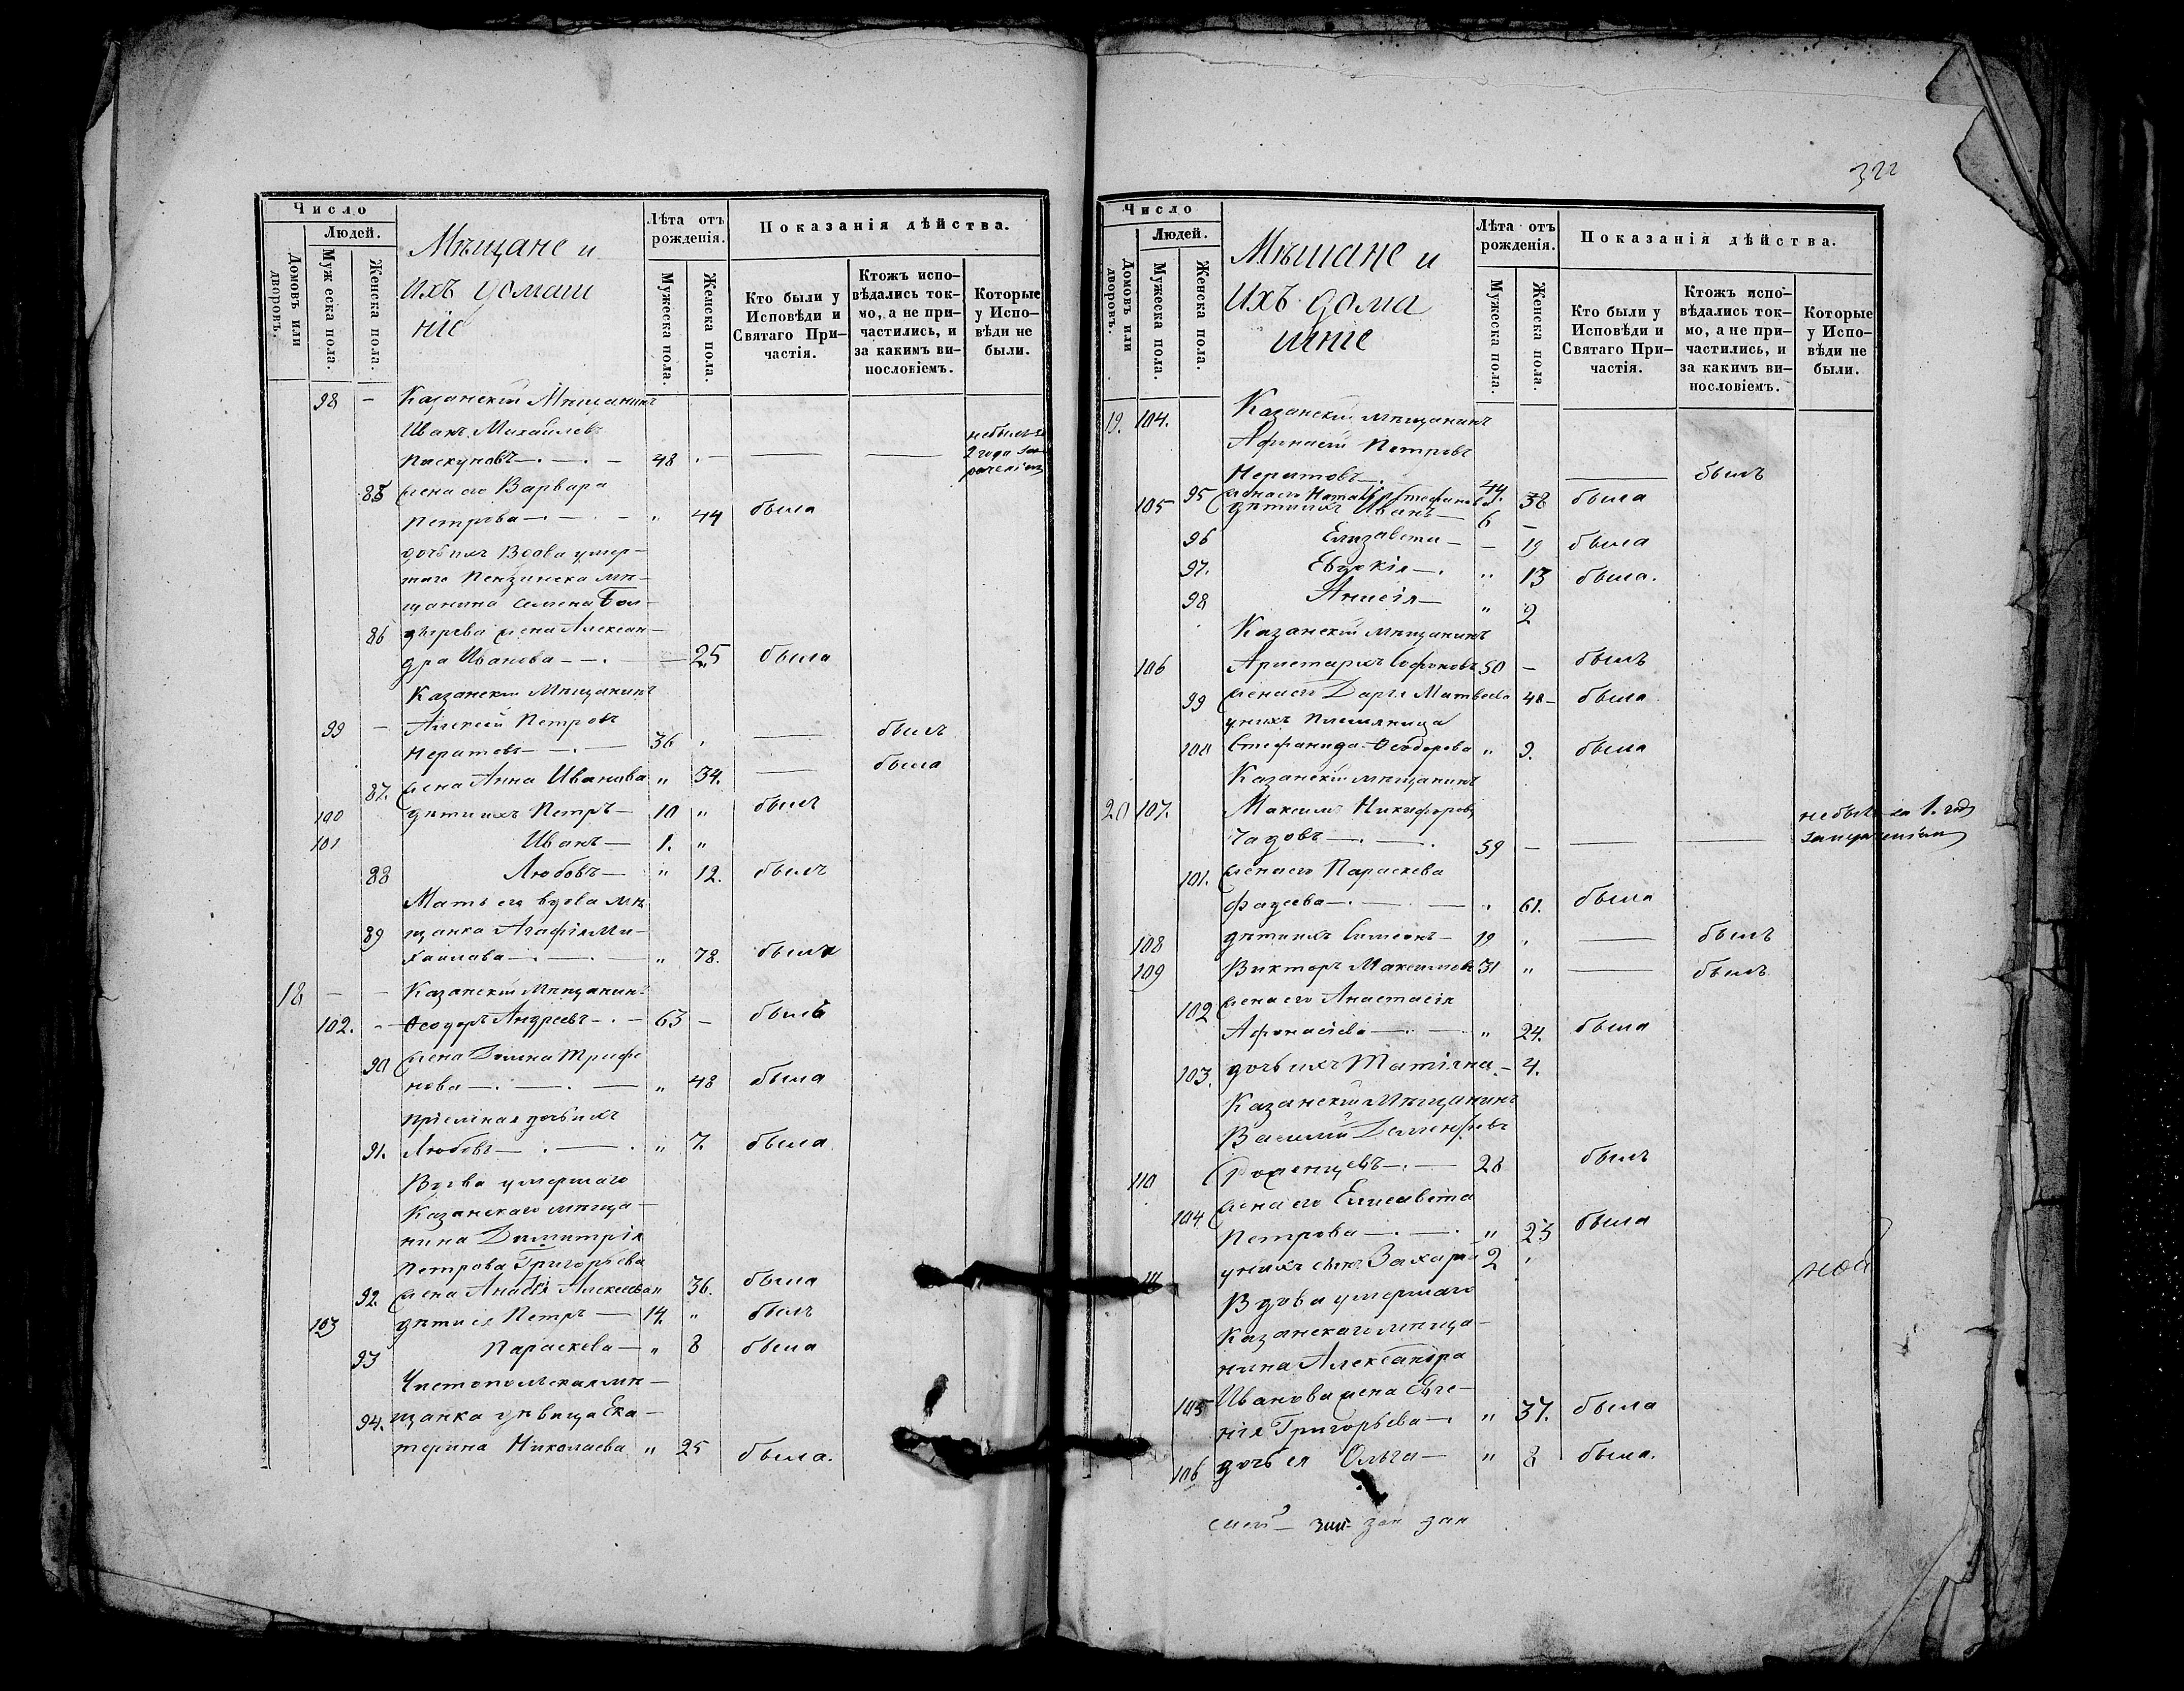 Число
Людей.
Домовъ или дворовъ.
Мужеска пола.
Женска пола.
Мѣщане и
ихъ домаш
ніе
Лѣта отъ рожденія.
Мужеска пола.
Женска пола.
Показанія дѣйства.
Кто были у Исповѣди и Святаго При-
частія.
Ктожъ испо-
вѣдались ток-
мо, а не при-
частились, и
за какимъ ви-
нословіемъ.
Которые
у Испо-
вѣди не
были.
98 — Казанскій Мѣщанинъ
Иванъ Михайловъ
Пискуновъ — 48 — — — небылъ
2 года
85 жена его Варвара
Петрова — „ 44 была
дочь ихъ Вдова умер-
шаго Пензинска мѣ-
щанина
86 жена Алексан-
дра Иванова — — 25 была
Казанскій Мѣщанинъ
99 — Алексѣй Петровъ
Нератовъ — 36 „ — былъ
87. жена Анна Иванова „ 34. — была
100 дѣти ихъ Петръ — 10 „ былъ
101 Иванъ — 1. „
88 Любовь — „ 12. былъ
Мать его вдова мѣ
89 щанка Агафія Ми-
хаилова — „ 78. была
18 — — Казанскій Мѣщанинъ
102. — Ѳеодоръ Андреевъ — 63 — былъ
90 жена Домна Трифо
нова — „ 48 была
Пріемная дочь ихъ
91. Любовь — „ 7. была
Вдова умершаго
Казанскаго мѣща-
нина Димитрія
Петрова Григорьева
92 жена 36. была
103 дѣти ея Петръ — 14. „ былъ
93 Параскева — „ 8 была
Чистопольская мѣ-
94. щанка дѣвица Ека-
терина Николаева „ 25 была.
322
Число
Людей.
Домовъ или дворовъ.
Мужеска пола.
Женска пола.
Мѣщане и
ихъ дома
шніе
Лѣта отъ рожденія.
Мужеска пола.
Женска пола.
Показанія дѣйства.
Кто были у Исповѣди и Святаго При-
частія.
Ктожъ испо-
вѣдались ток-
мо, а не при-
частились, и
за какимъ ви-
нословіемъ.
Которые
у Испо-
вѣди не
были.
19. 104. Казанскій мѣщанинъ
Афинасій Петровъ
Нератовъ — 44. — былъ
95 жена его 38 была
105 дѣти ихъ Иванъ — 6 —
96 Елизавета — — 19 была
97. Евдокія — „ 13 была.
98 Анисія — „ 2
Казанскій мѣщанинъ
106 Аристархъ Софоновъ 50 — былъ
99 жена его Дарья Матвеева 48 — была
у нихъ племянница
100 Стефанида Ѳеодорова „ 9. была
Казанскій мѣщанинъ
20 107. Максимъ Никифоровъ
Чадовъ — 59 — — — небылъ за 1. годъ
101. жена его Параскева
Фадеева — „ 61. была
108 дѣти ихъ Симеонъ — 19 „ — былъ
109 Викторъ Максимовъ 31 „ — былъ
102 жена его Анастасія
Афонасіева — „ 24. была
103. дочь ихъ Татіяна — 4.
Казанскій Мѣщанинъ
Василій
110 28 былъ
104 жена его Елисавета
Петрова — „ 23 была
111 у нихъ сынъ Захарій 2 „
Вдова умершаго
Казанскаго мѣща-
нина Александра
105 Иванова жена Евге-
нія Григорьева — „ 37. была
106 дочь ея Ольга — „ 8 была.